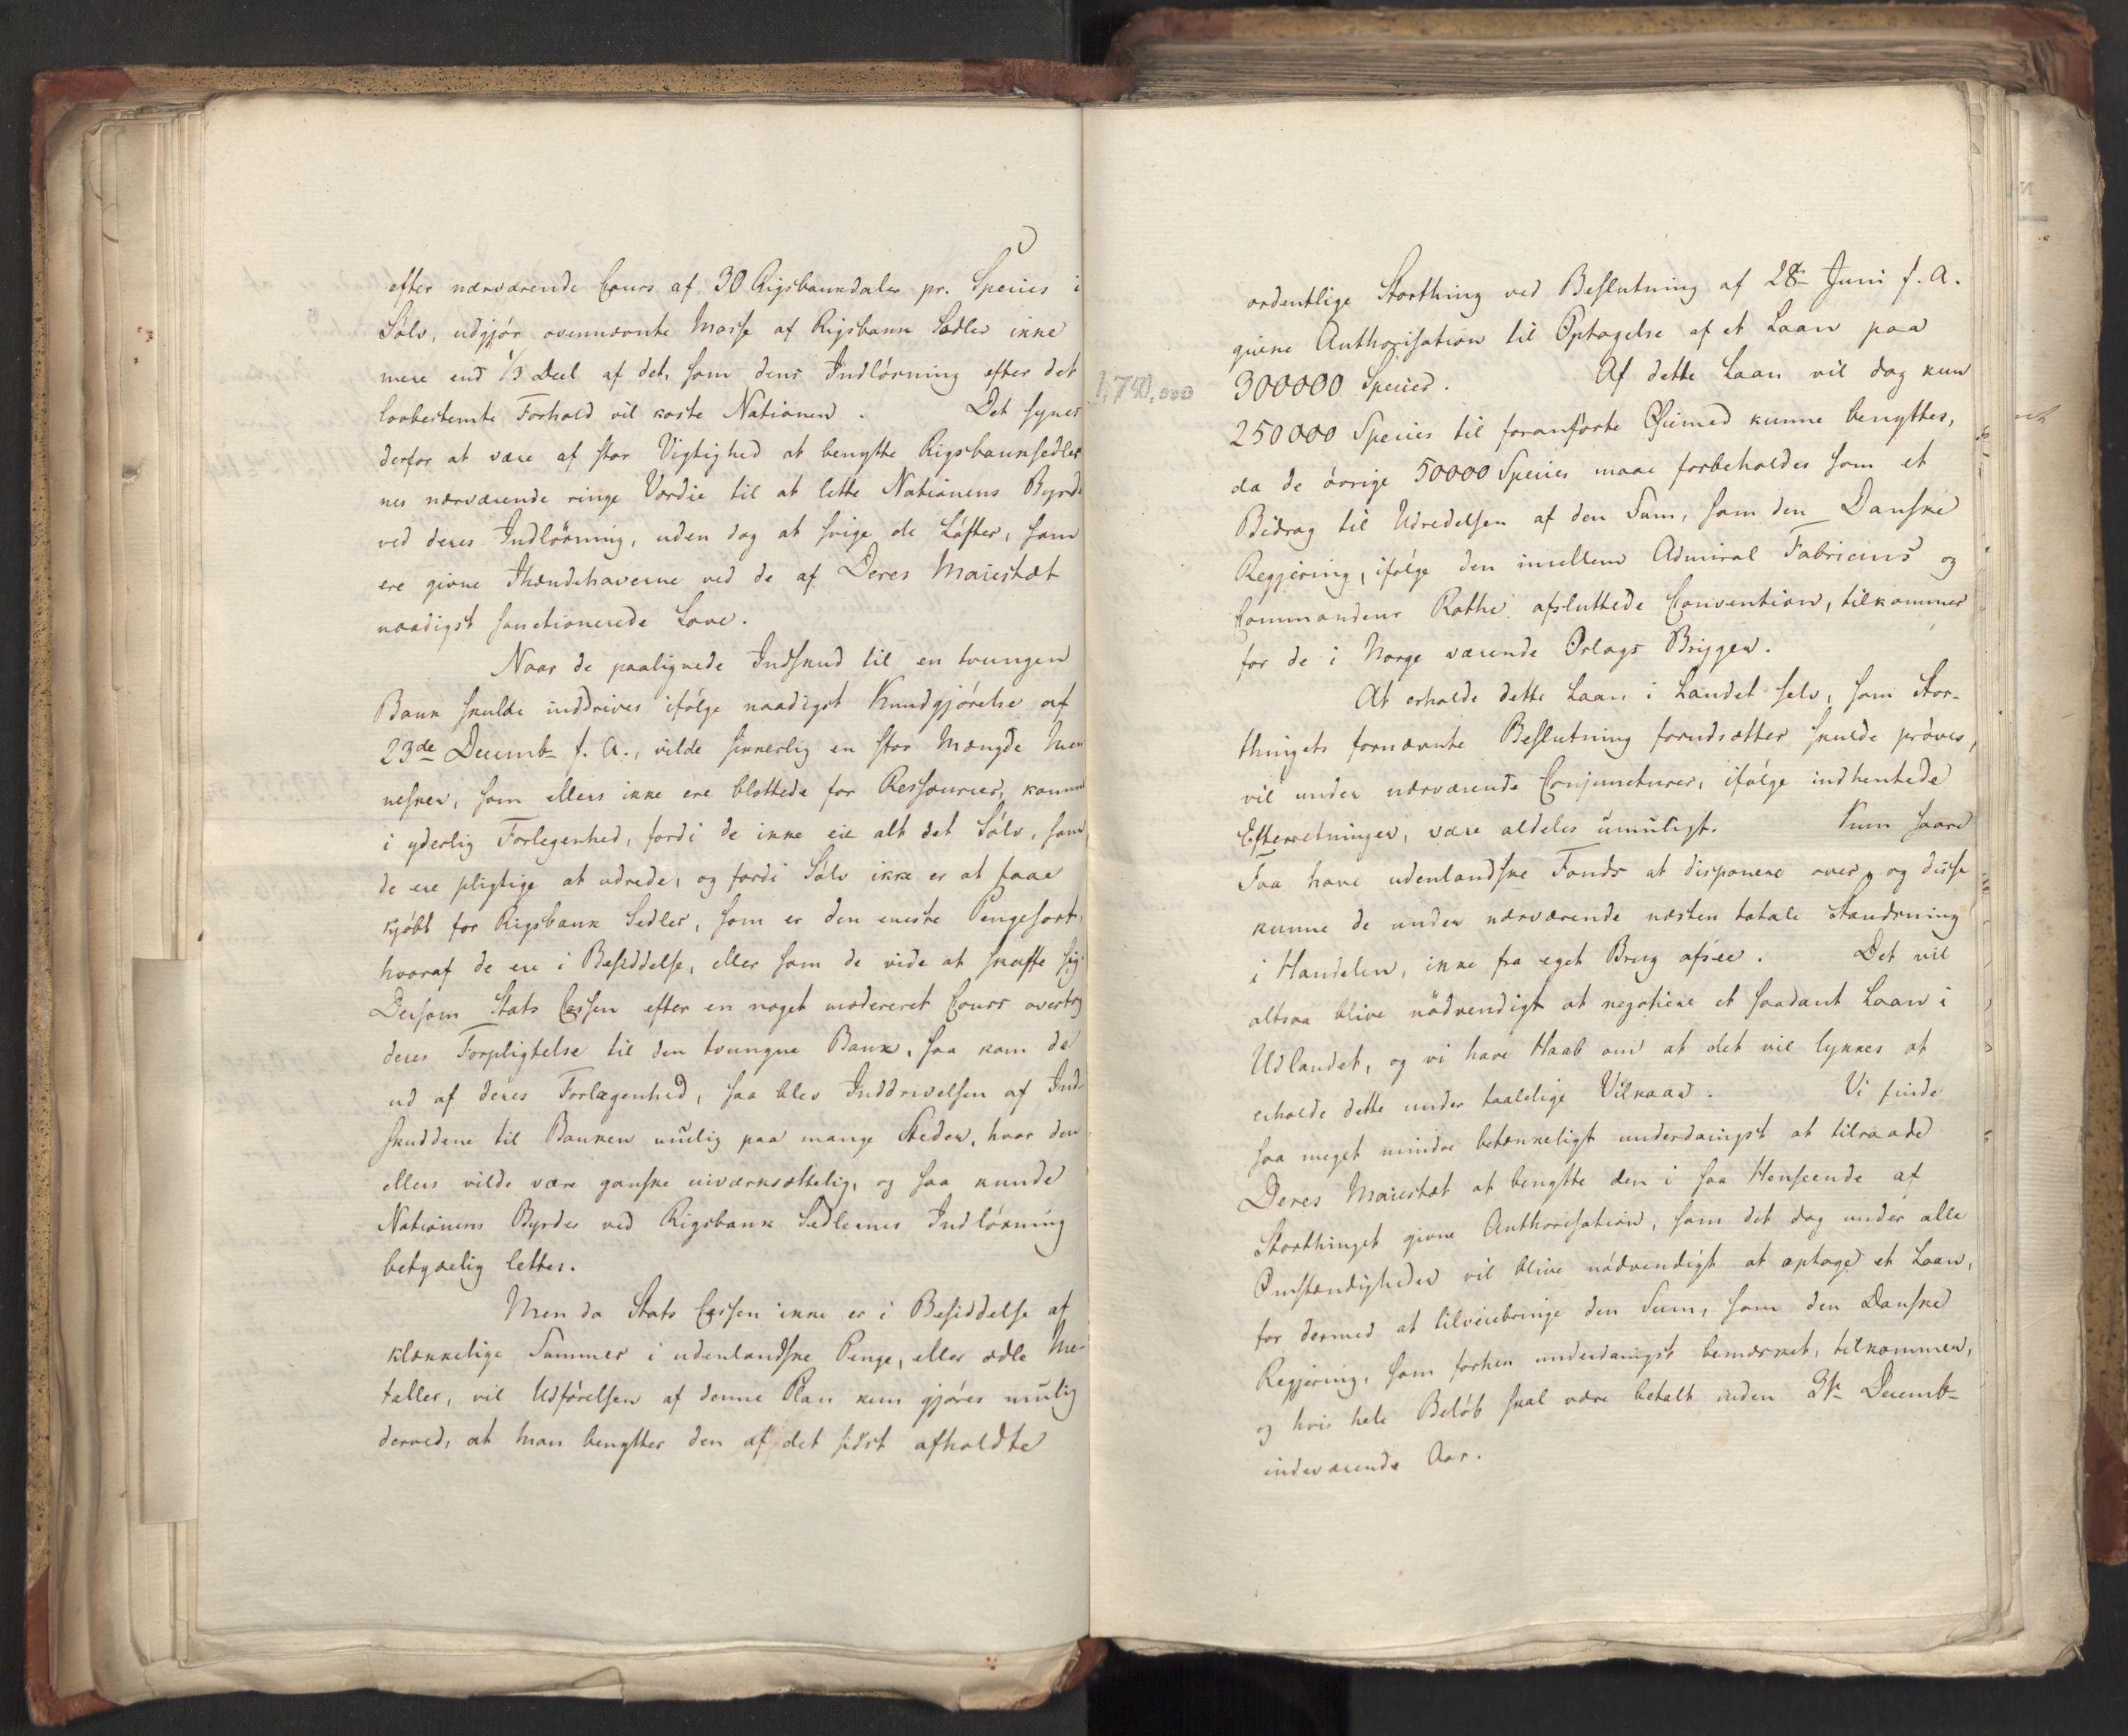 efter nærværende Cours af 30 Rigsbankdaler pr. Species i
Sölv, udgjör ovennævnte Masse af Rigsbank Sedler ikke
mere end 1/3 Deel af det, som dens Indlösning efter det
lovbestemte Forhold vil koste Nationen. Det synes
derfor at være af stor Vigtighed at benytte Rigsbanksedler
nes nærværende ringe Værdie til at lette Nationens Byrde
ved deres Indlösning, uden dog at svige de Löfter, som
ere givne Ihændehaverne ved de af Deres Maiestæt
naadigst sanctionerede Love.
Naar de paalignede Indskud til en tvungen
Bank skulde inddrives ifölge naadigst Kundgjörelse af
23de Decemb. f. A., vilde sikkerlig en stor Mængde Men
nesker, som ellers ikke ere blottede for Ressourcer, komme
i yderlig Forlegenhed, fordi de ikke eie alt det Sölv, som
de ere pligtige at udrede, og fordi Sölv ikke er at faae
kjöbt for Rigsbank Sedler, som er den eneste Pengesort,
hvoraf de ere i Besiddelse, eller som de vide at skaffe sig.
Dersom Stats Cassen efter en noget modereret Cours overtog
deres Forpligtelse til den tvungne Bank, saa kom de
ud af deres Forlægenhed, saa blev Inddrivelsen af Ind-
skuddene til Banken mulig paa mange Steder, hvor den
ellers vilde være ganske uiværksættelig, og saa kunde
Nationens Byrder ved Rigsbank Sedlernes Indlösning
betydelig lettes.
Men da Stats Cassen ikke er i Besiddelse af
klækkelige Summer i udenlandske Penge, eller ædle Me-
taller, vil Udförelsen af denne Plan kun gjöres mulig
derved, at man benytter den af det sidst afholdte
ordentlige Storthing ved Beslutning af 28de Juni f. A.
givne Authorisation til Optagelse af et Laan paa
1,740,000
300000 Species. Af dette Laan vil dog kun
250000 Species til foranförte Öiemed kunne benyttes,
da de övrige 50000 Species maae forbeholdes som et
Bidrag til Udredelsen af den Sum, som den Danske
Regjering, ifölge den imellem Admiral Fabricius og
Commandeur Rothe afsluttede Convention, tilkommer
for de i Norge værende Orlogs Brigger.
At erholde dette Laan i Landet selv, som Stor-
thingets fornævnte Beslutning forudsætter skulde pröves,
vil under nærværende Conjuncturer, ifölge indhentede
Efterretninger, være aldeles umuligt. Kun saare
Faa have udenlandske Fonds at disponere over, og disse
kunne de under nærværende næsten totale Standsning
i Handelen, ikke fra eget Brug afsee. Det vil
altsaa blive nödvendigt at negotiere et saadant Laan i
Udlandet, og vi have Haab om at det vil lykkes at
erholde dette under taalelige Vilkaar. Vi finde
saa meget mindre betænkeligt underdanigst at tilraade
Deres Maiestæt at benytte den i saa Henseende af
Storthinget givne Authorisation, som det dog under alle
Omstændigheder vil blive nödvendigt at optage et Laan,
for dermed at tilveiebringe den Sum, som den Danske
Regjering, som forhen underdanigst bemærket, tilkommer,
og hvis hele Beløb skal være betalt inden 31te Decemb.
indeværende Aar.